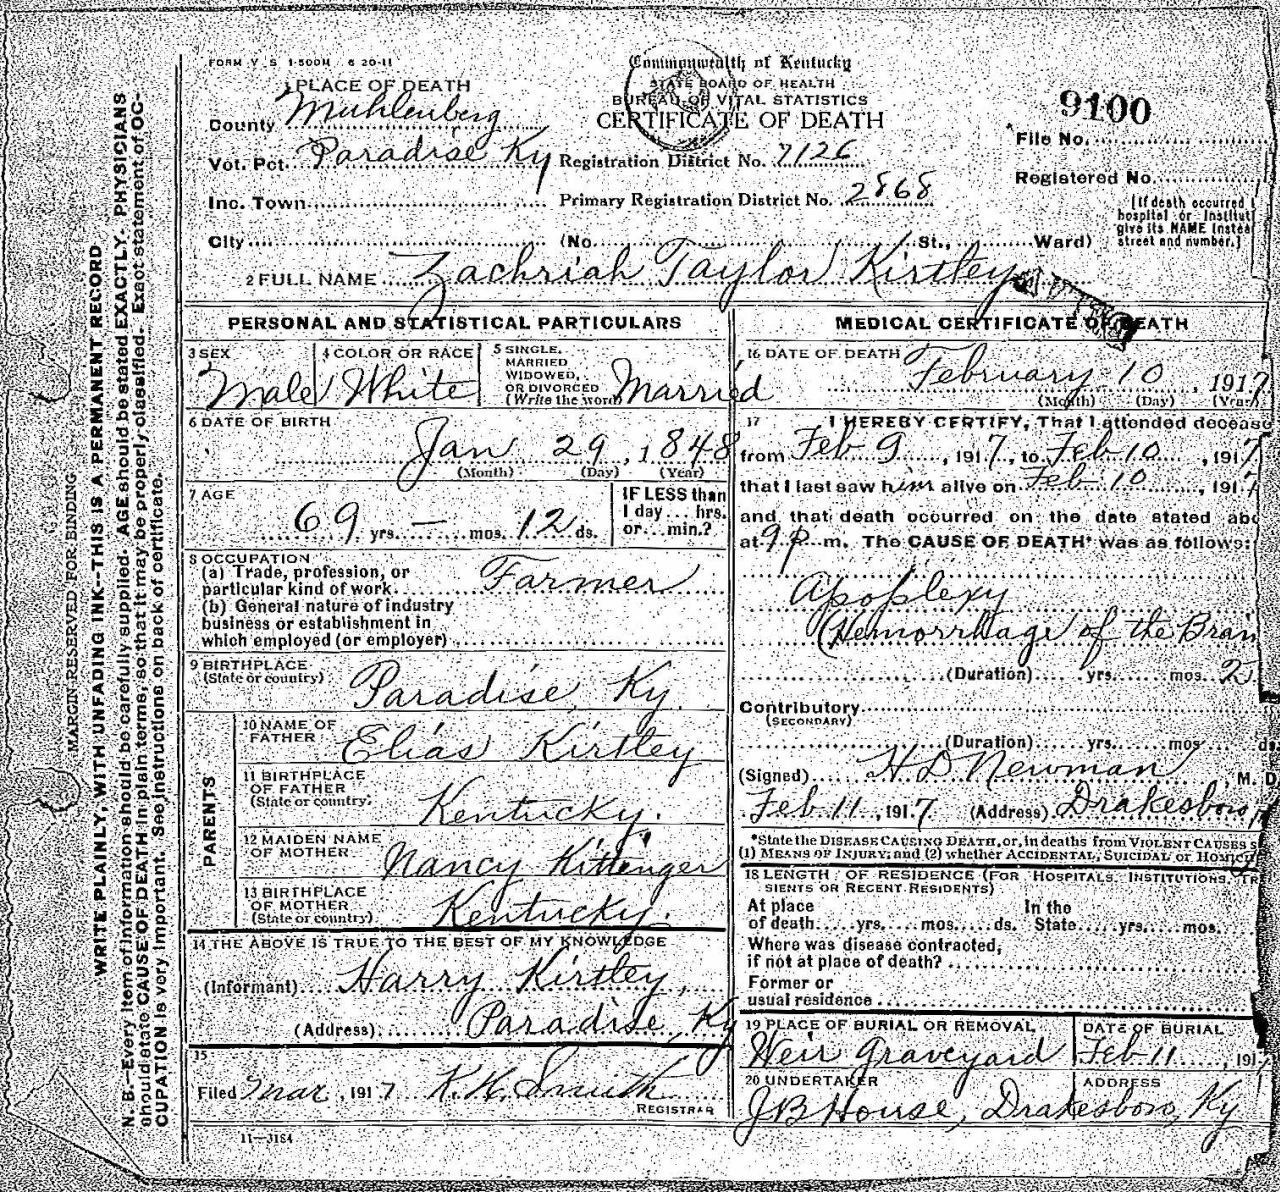 FORM V. S. 1-500M 6 20-11
1 PLACE OF DEATH
County Muhlenberg
Vot. Pct. Paradise Ky
Inc. Town
City (No. St., Ward)
Commonwealth of Kentucky
STATE BOARD OF HEALTH
BUREAU OF VITAL STATISTICS
CERTIFICATE OF DEATH
Registration District No. 7126
Primary Registration District No. 2868
9100
File No.
Registered No.
[If death occurred
hospital or Institut
give its NAME instea
street and number.]
2 FULL NAME Zachriah Taylor Kirtley
PERSONAL AND STATISTICAL PARTICULARS
3 SEX Male
4 COLOR OR RACE White
5 SINGLE, MARRIED WIDOWED, OR DIVORCED (Write the word) Married
6 DATE OF BIRTH
Jan 29, 1848
(Month) (Day) (Year)
7 AGE
69 yrs. — mos. 12 ds.
IF LESS than
1 day ... hrs.
or ... min.?
8 OCCUPATION
(a) Trade, profession, or
particular kind of work Farmer
(b) General nature of industry
business or establishment in
which employed (or employer)
9 BIRTHPLACE
(State or country) Paradise, Ky.
PARENTS
10 NAME OF
FATHER Elias Kirtley
11 BIRTHPLACE
OF FATHER
(State or country) Kentucky.
12 MAIDEN NAME
OF MOTHER Nancy Kittenger
13 BIRTHPLACE
OF MOTHER
(State or country) Kentucky.
14 THE ABOVE IS TRUE TO THE BEST OF MY KNOWLEDGE
(Informant) Harry Kirtley,
(Address) Paradise, Ky
15
Filed Mar, 1917 K.H. Smith
REGISTRAR
11—3184
MEDICAL CERTIFICATE OF DEATH
16 DATE OF DEATH
February 10, 1917
(Month) (Day) (Year)
17 I HEREBY CERTIFY, That I attended deceas
from Feb 9, 1917, to Feb 10, 1917
that I last saw him alive on Feb 10, 1917
and that death occurred on the date stated abo
at 9 P. m. The CAUSE OF DEATH* was as follows:
Apoplexy
(Hemorrhage of the Brain
(Duration) yrs. mos. 2
Contributory
(SECONDARY)
(Duration) yrs. mos. ds.
(Signed) H D Newman M. D
Feb 11, 1917 (Address) Drakesboro,
*State the DISEASE CAUSING DEATH, or, in deaths from VIOLENT CAUSES s
(1) MEANS OF INJURY; and (2) whether ACCIDENTAL, SUICIDAL or HOMICI
18 LENGTH OF RESIDENCE (FOR HOSPITALS, INSTITUTIONS, TR
SIENTS OR RECENT RESIDENTS)
At place In the
of death yrs. mos. ds. State yrs. mos.
Where was disease contracted,
if not at place of death?
Former or
usual residence
19 PLACE OF BURIAL OR REMOVAL
Weir Graveyard
DATE OF BURIAL
Feb 11, 191
20 UNDERTAKER ADDRESS
J B House, Drakesboro, Ky
MARGIN RESERVED FOR BINDING
WRITE PLAINLY, WITH UNFADING INK—THIS IS A PERMANENT RECORD
N. B.—Every item of information should be carefully supplied. AGE should be stated EXACTLY. PHYSICIANS
should state CAUSE OF DEATH in plain terms, so that it may be properly classified. Exact statement of OC-
CUPATION is very important. See instructions on back of certificate.